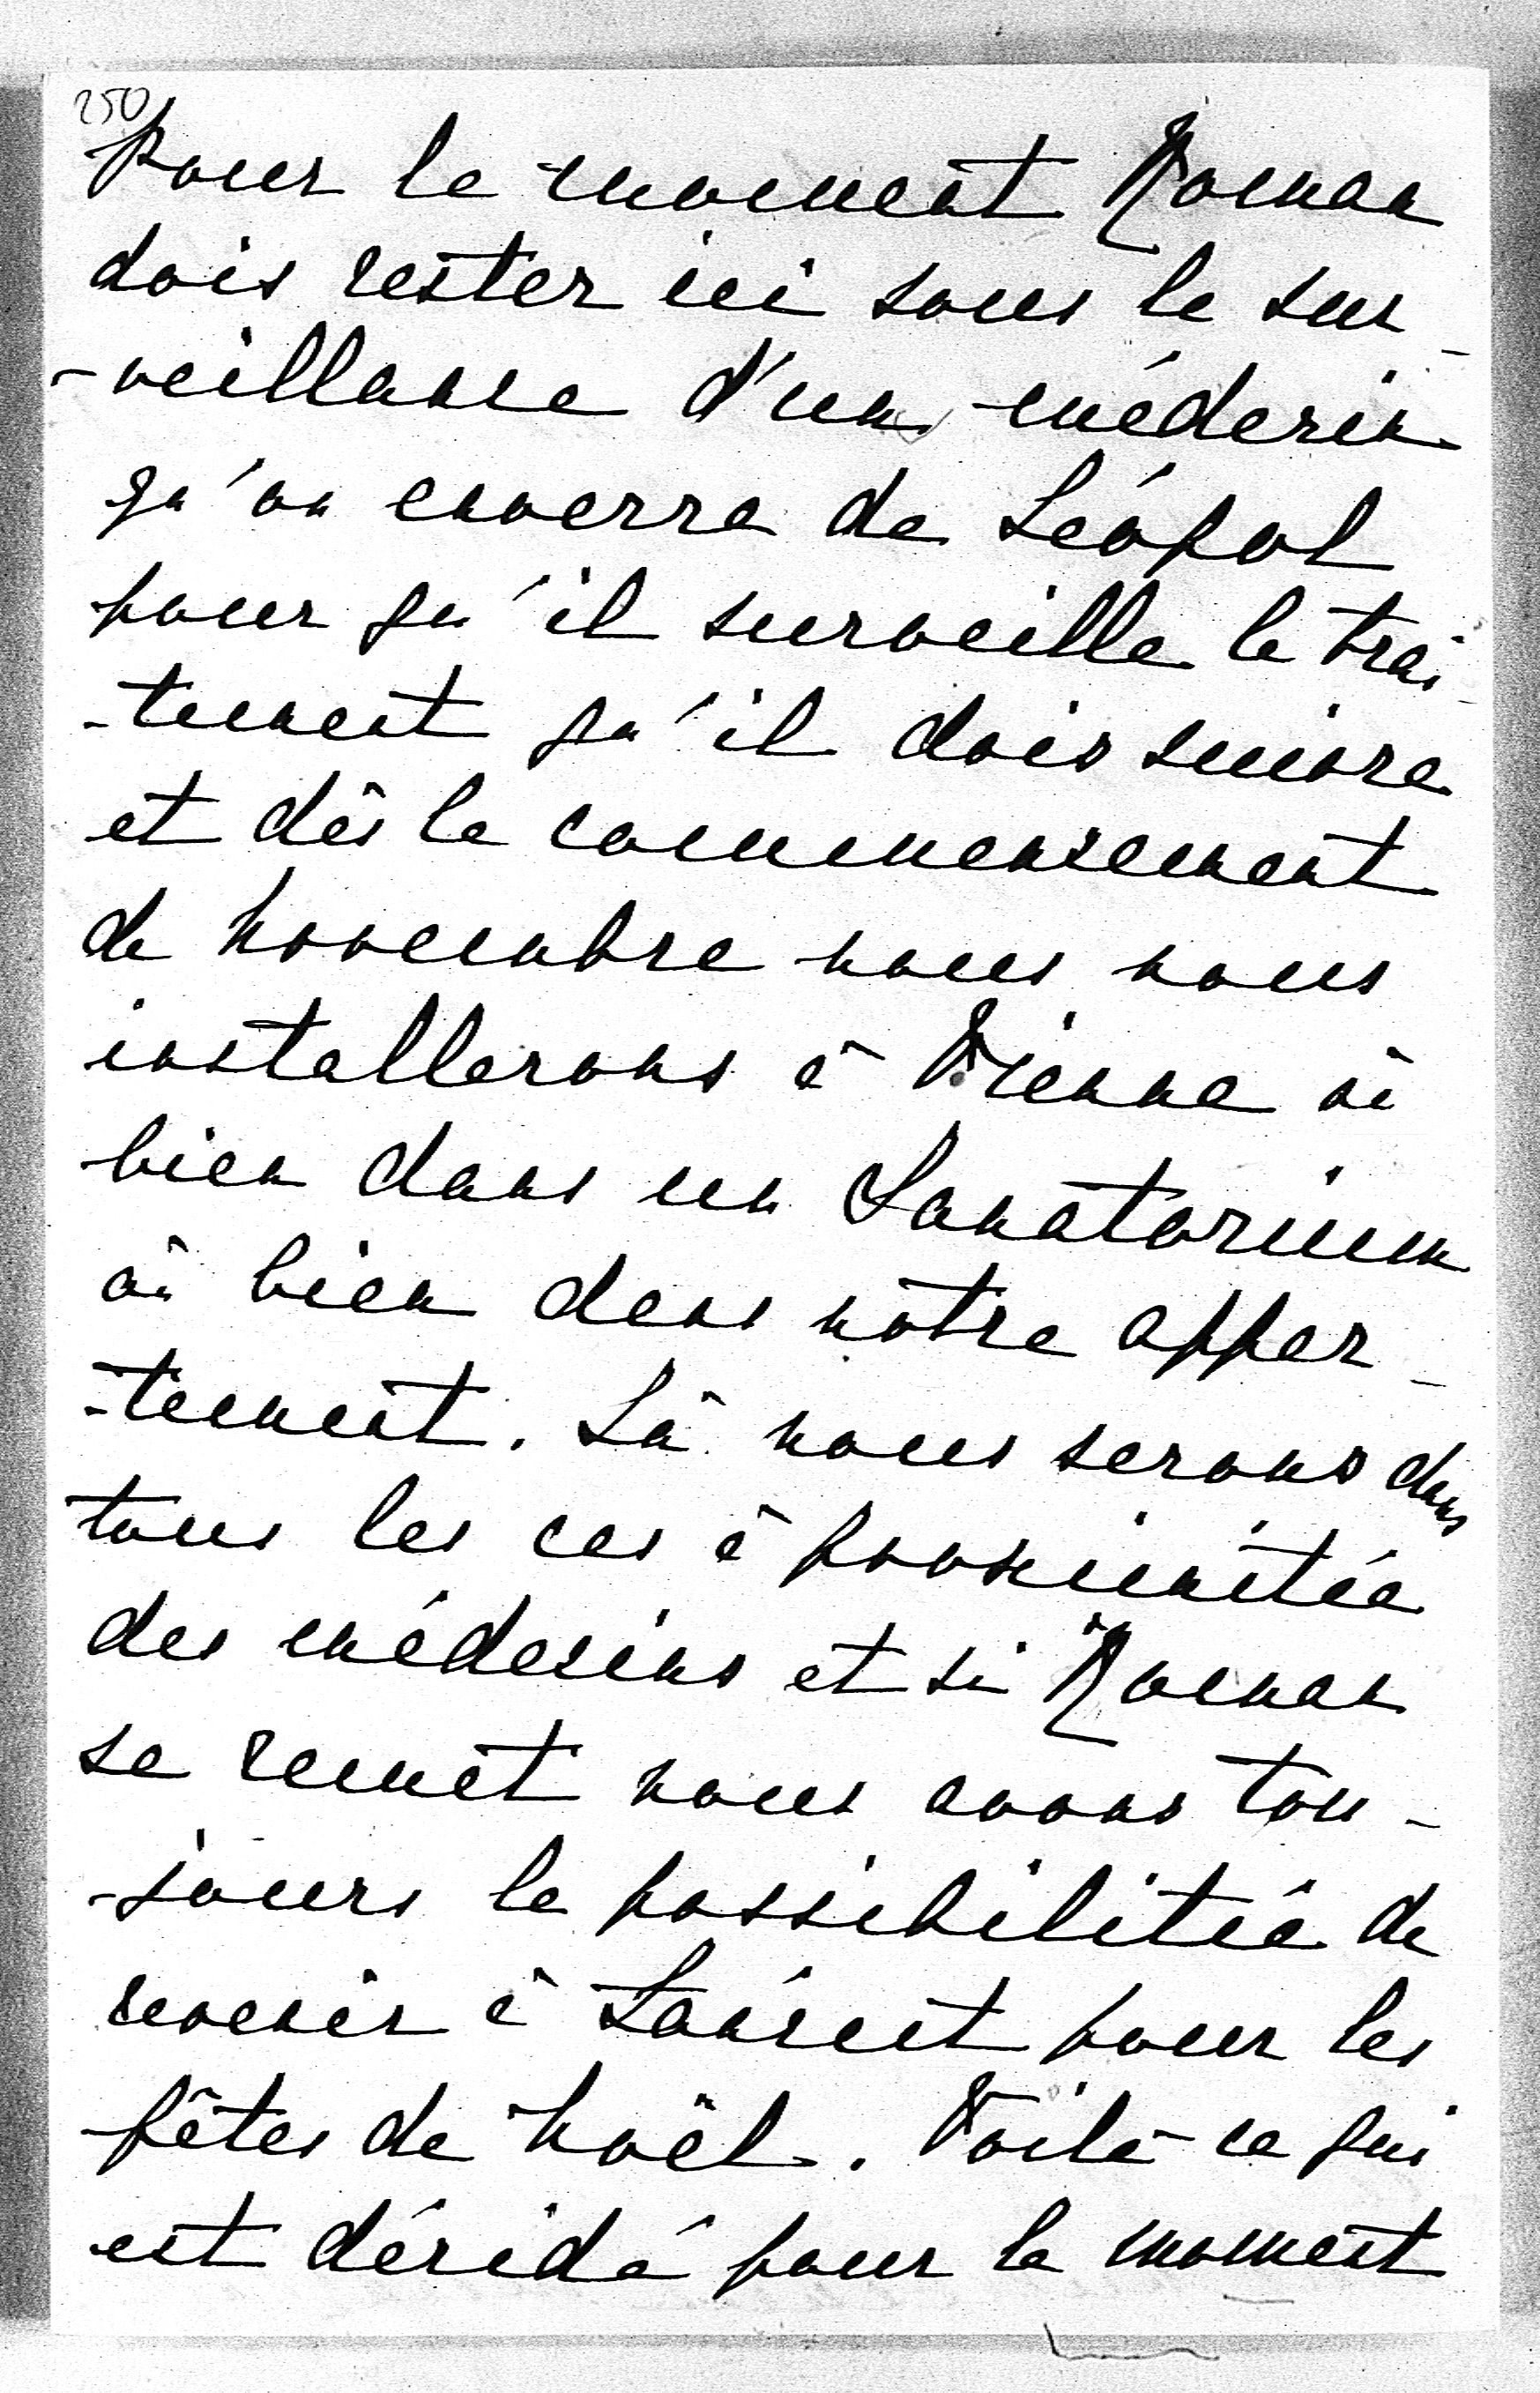 250
Pour le moment Roman
dois rester ici sous le sur-
-veillance d'un médecin
qu'on enverra de Léopol
pour qu'il surveille le trai-
-tement qu'il dois suivre
et dès le commencement
de Novembre nous nous
installerons à Vienne où
bien dans un Sanatorium
où bien dans notre apper-
-tement. Là nous serons dans
tous les cas à proximitée
des médecins et si Roman
se remet nous avons tou-
-jours la possibilitée de
revenir à Łańcut pour les
fêtes de Noël. Voilà ce qui
est décidé pour le moment